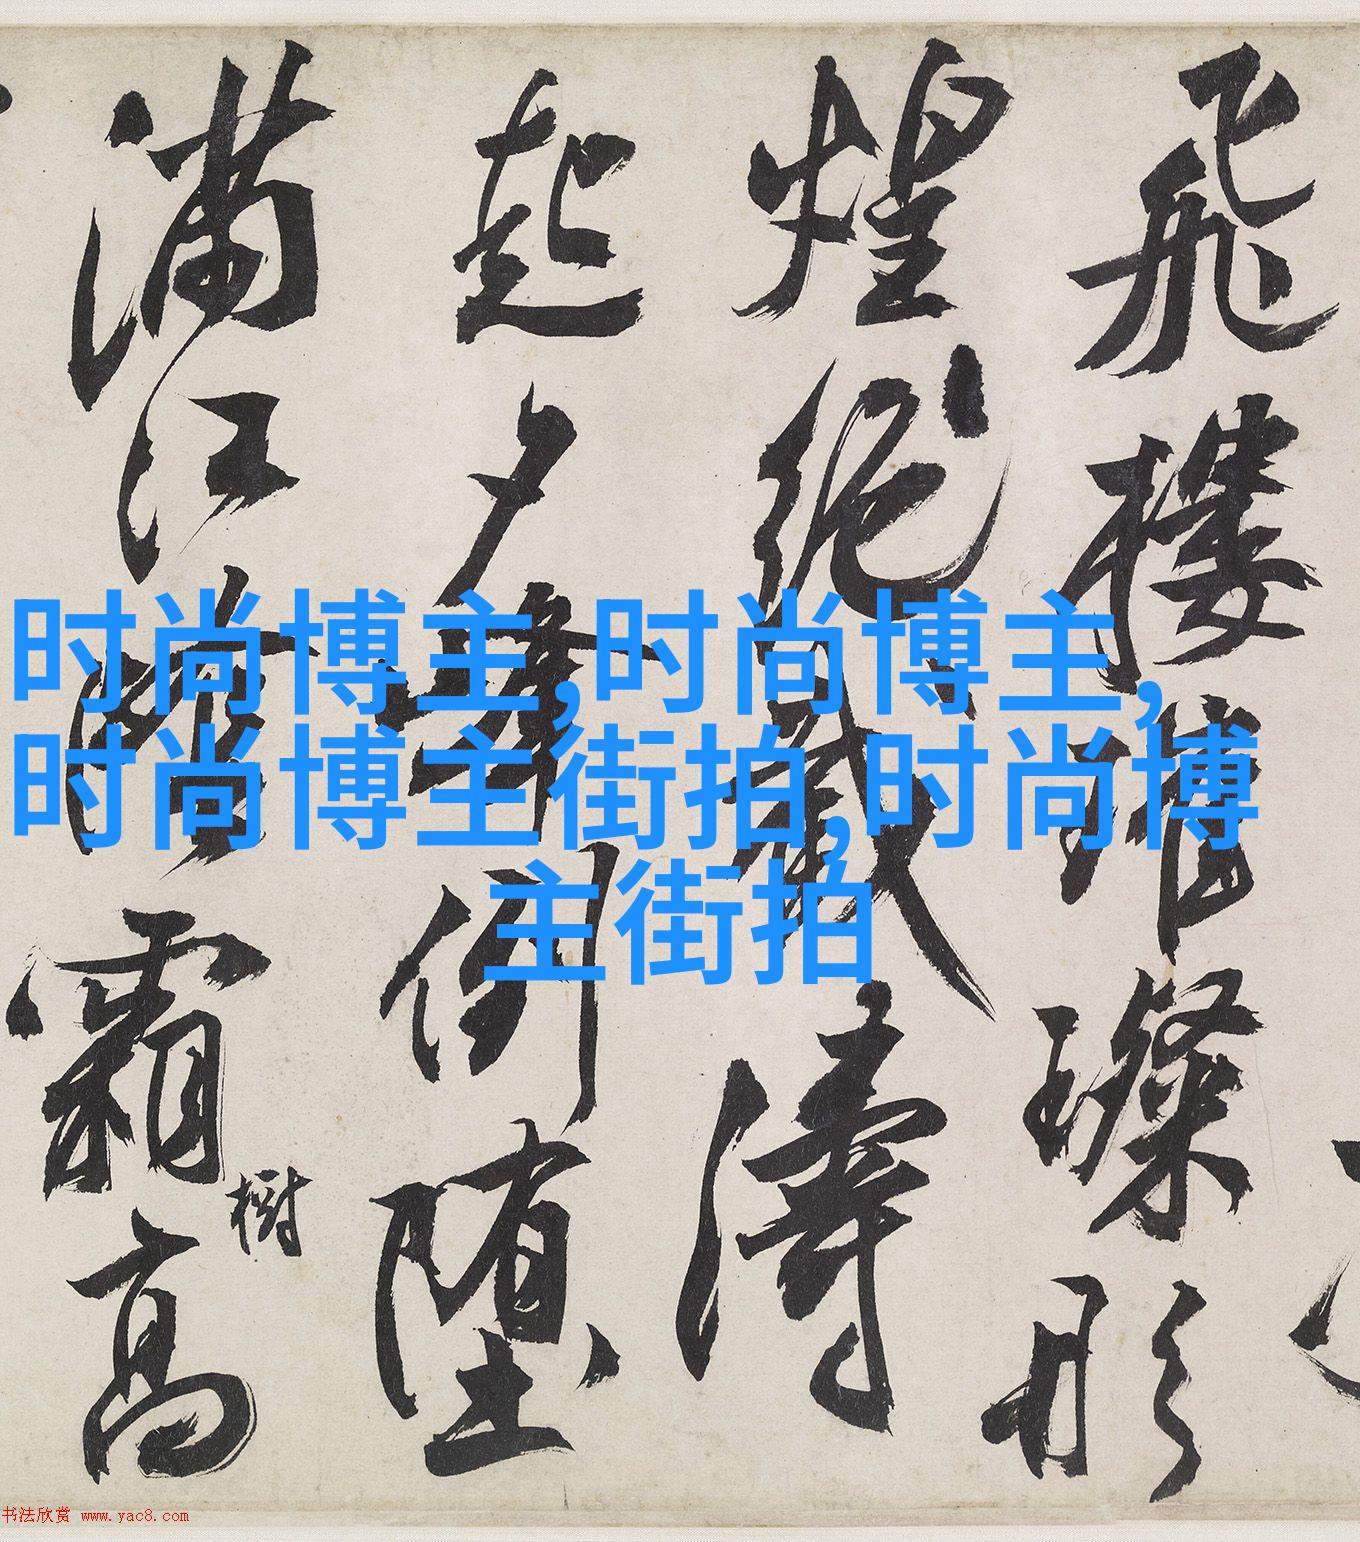 飛樓璀璨彤
煌絶濤
起夕峰倒堕
滿江霜高
樹
时尚博主,时尚博主,
时尚博主街拍,时尚博
主街拍
书法欣赏 www.yac8.com